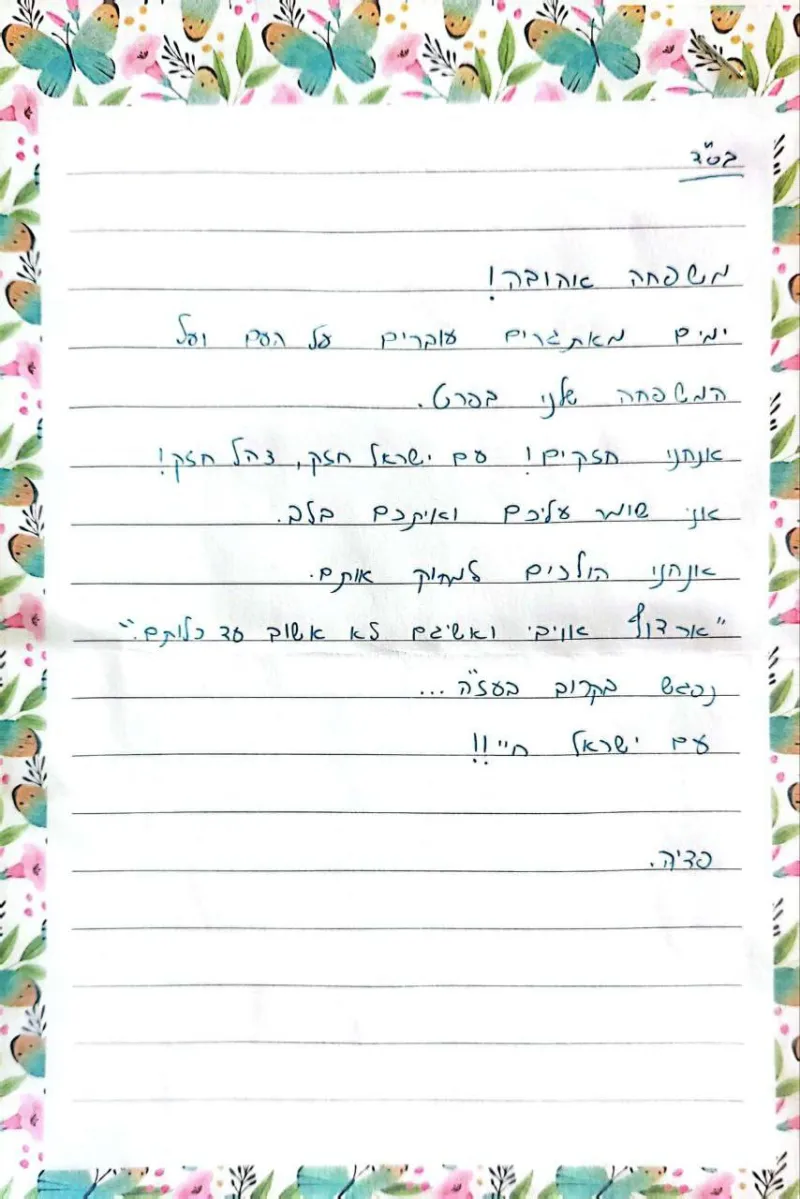 בס"ד
משפחה אהובה!
ימים מאתגרים עוברים על העם ועל
המשפחה שלנו בפרט.
אנחנו חזקים! עם ישראל חזק, צהל חזק!
אני שומר עליכם ואיתכם בלב.
אנחנו הולכים למחוק אותם.
"ארדוף אוייבי ואשיגם לא אשוב עד כלותם."
נפגש בקרוב בעז"ה ...
עם ישראל חיי!!
פדיה.